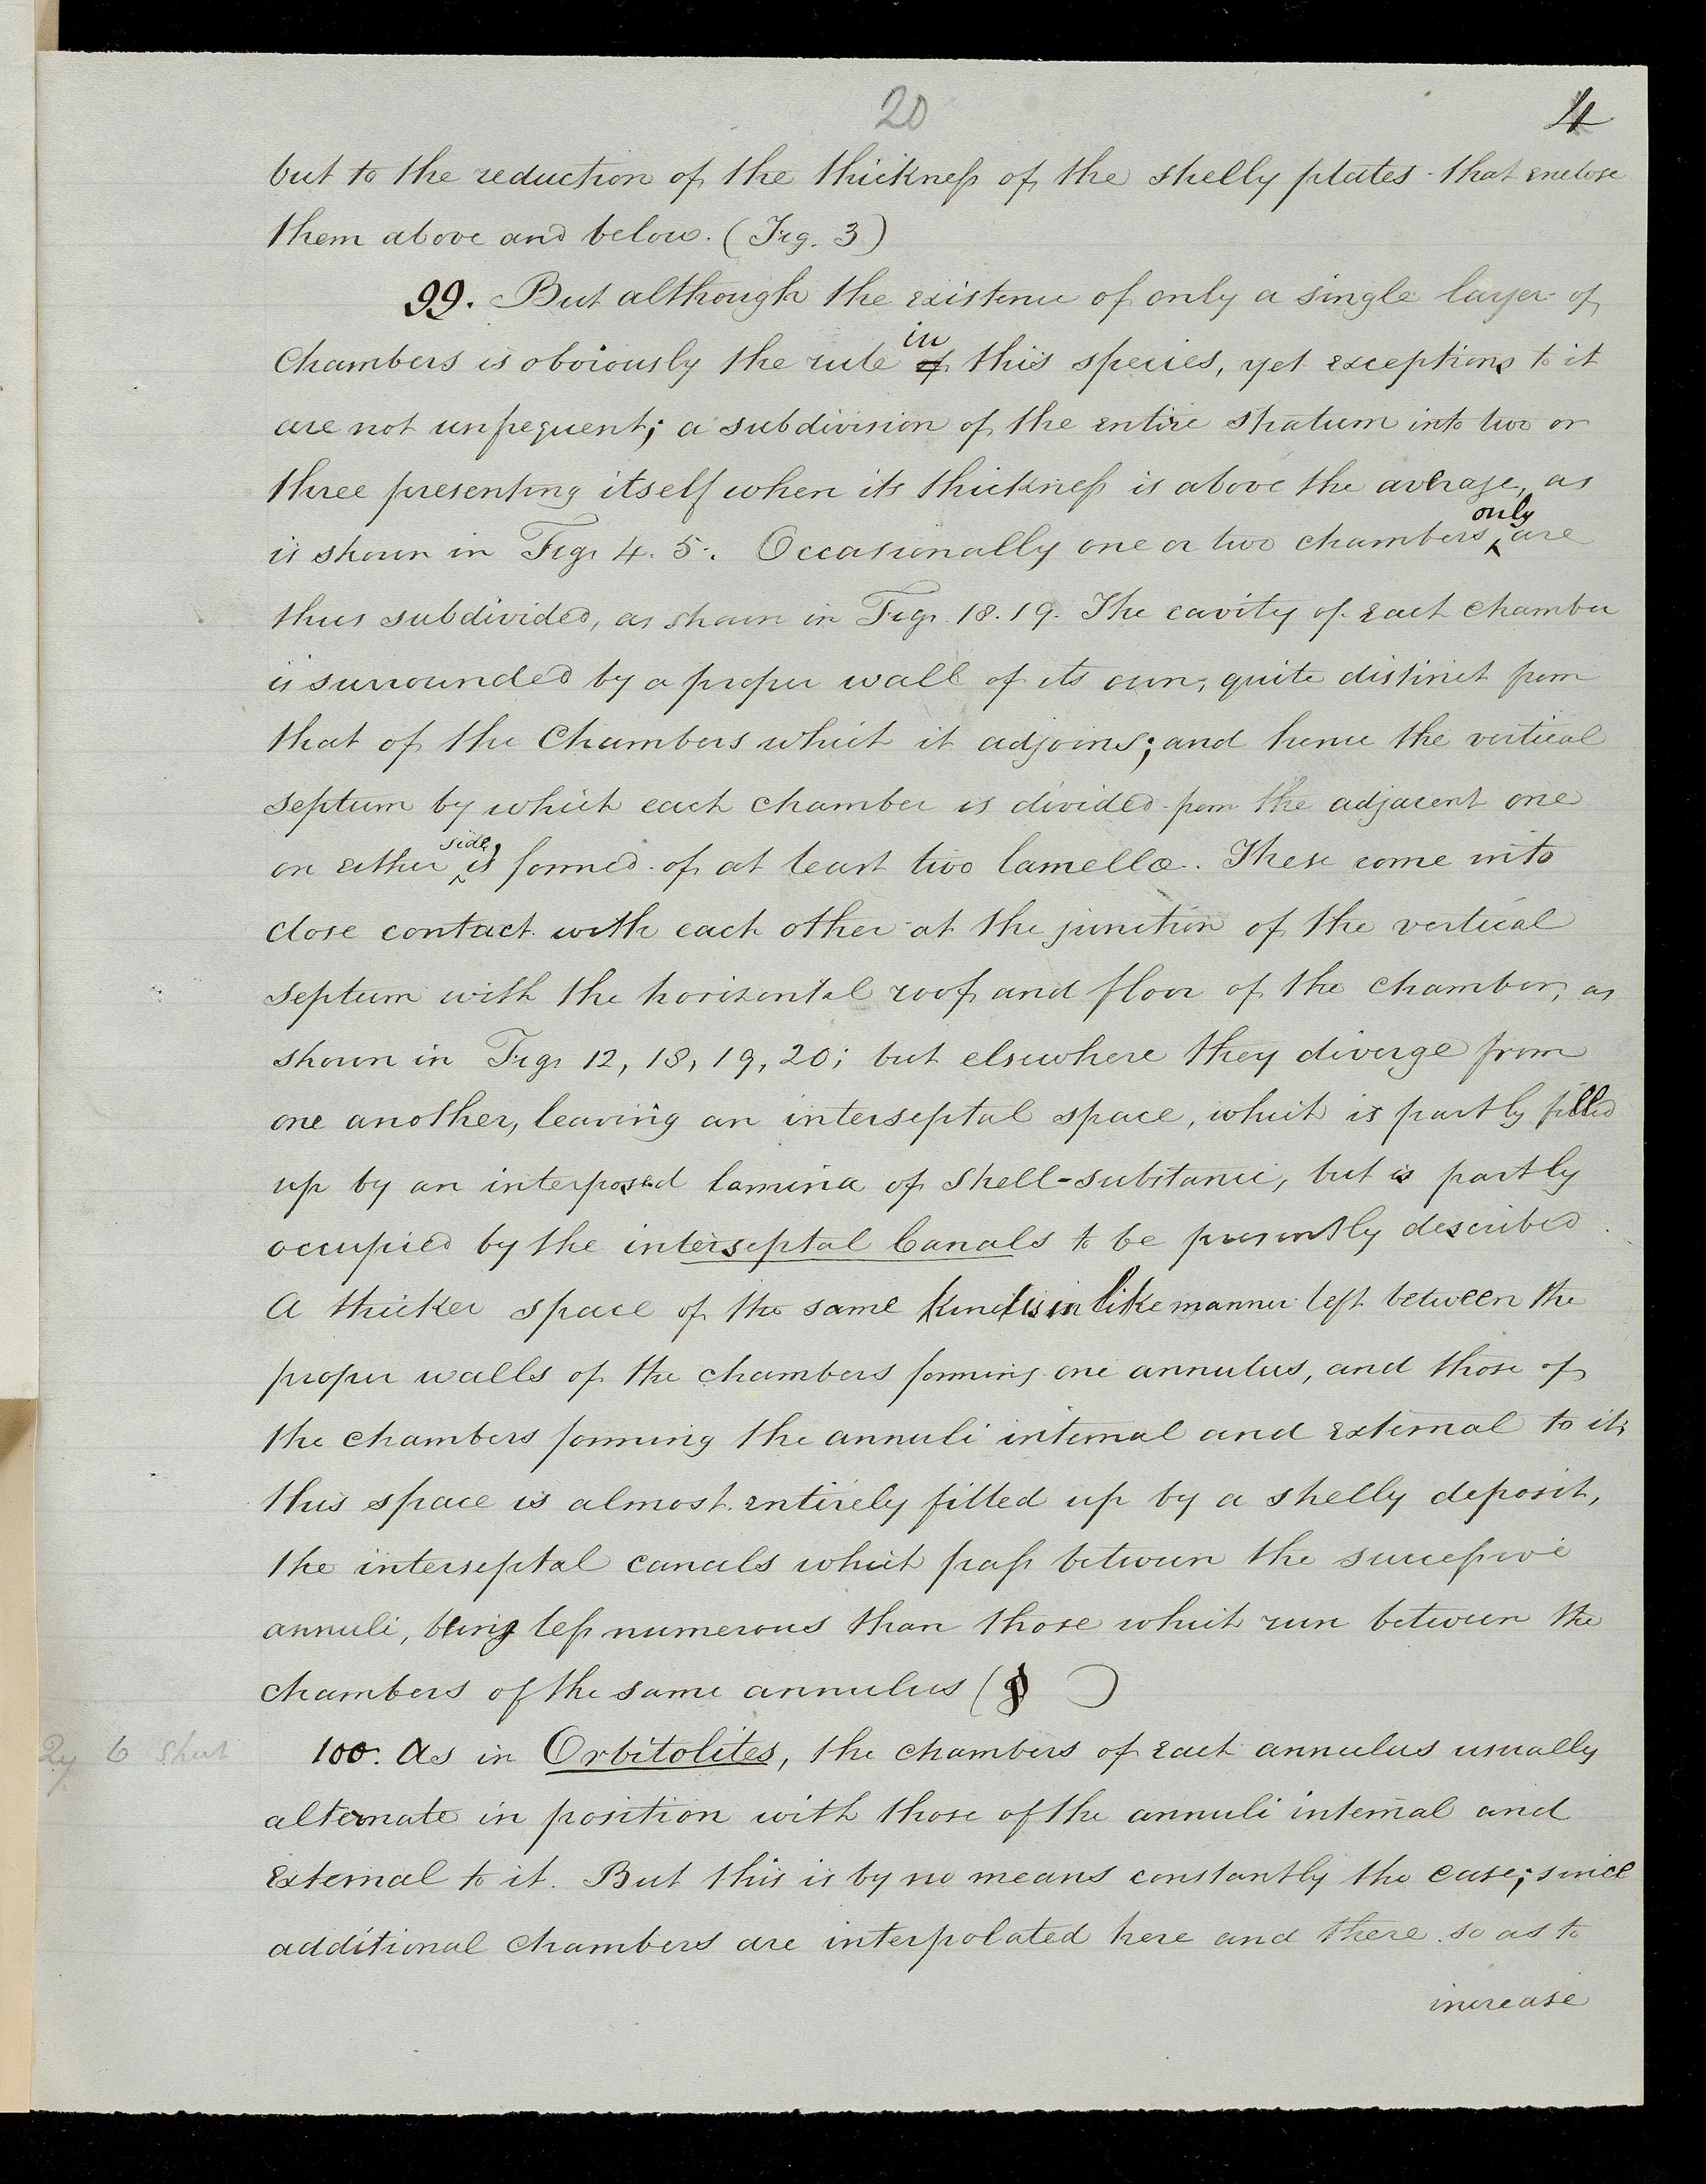 20
4
but to the reduction of the thickness of the shelly plates that enclose
them above and below. (Fig. 3)
99. But although the existence of only a single layer of
Chambers is obviously the rule in of this species, yet exceptions to it
are not unfrequent; a subdivision of the entire stratum into two or
three presenting itself when its thickness is above the average, as
is shown in Figs 4. 5. Occasionally one or two chambers only are
thus subdivided, as shown in Figs. 18. 19. The cavity of each chamber
is surrounded by a proper wall of its own, quite distinct from
that of the Chambers which it adjoins; and hence the vertical
septum by which each chamber is divided from the adjacent one
on either side, is formed of at least two lamellæ. These come into
close contact with each other at the junction of the vertical
septum with the horizontal roof and floor of the chamber, as
shown in Figs 12, 18, 19, 20; but elsewhere they diverge from
one another, leaving an interseptal space, which is partly filled
up by an interposed lamina of shell-substance, but is partly
occupied by the interseptal Canals to be presently described.
A thicker space of the same kind is in like manner left between the
proper walls of the chambers forming one annulus, and those of
the chambers forming the annuli internal and external to it;
this space is almost entirely filled up by a shelly deposit,
the interseptal canals which pass between the successive
annuli, being less numerous than those which run between the
chambers of the same annulus (§ )
100. As in Orbitolites, the chambers of each annulus usually
alternate in position with those of the annuli internal and
external to it. But this is by no means constantly the case; since
additional chambers are interpolated here and there so as to
increase